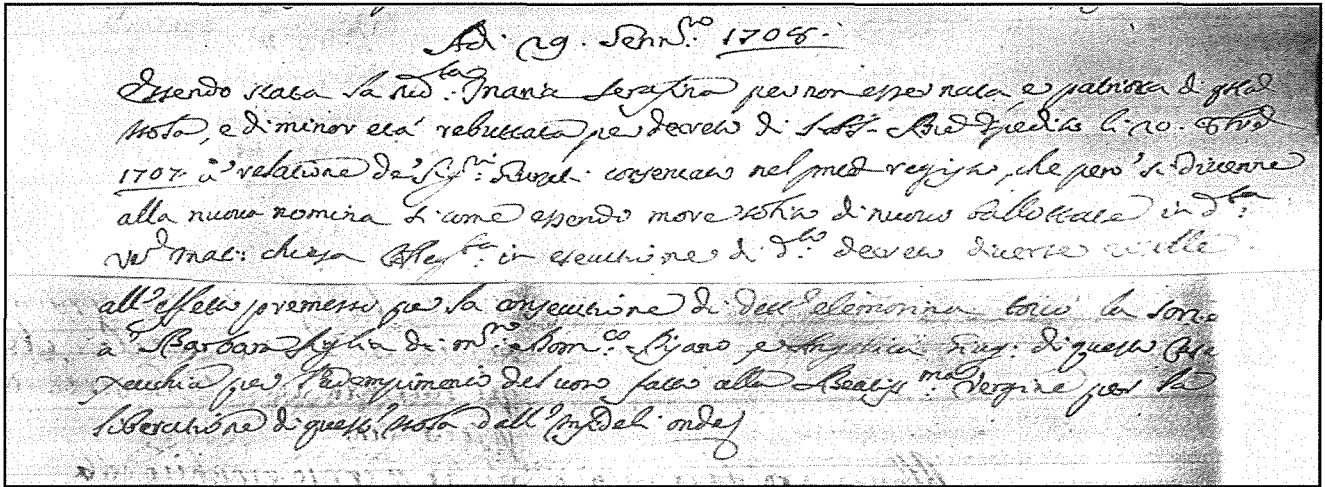 Adi 29. Genn.ro 1708.
Essendo stata la sud.ta Maria Serafina per non esser nata, e patriota di
Isola, e di minor età rebuttata per decreto di li 20.
1707. a' relatione de Sig.ri conservato nel pred. registro, che però si divenne
alla nuova nomina si come essendo more solito di nuovo ballottate in d.ta
Ven. Mat: chiesa in esecutione di d.to decreto diverse zitelle
all'effetto premesso per la consecutione di dett'elemosina toccò la sorte
a' Barbara figlia di m.ro Dom.co e Angelica iug: di questa
per l'adempimento del voto fatto alla Beatiss.ma Vergine per la
liberatione di quest'Isola dall'Infideli onde